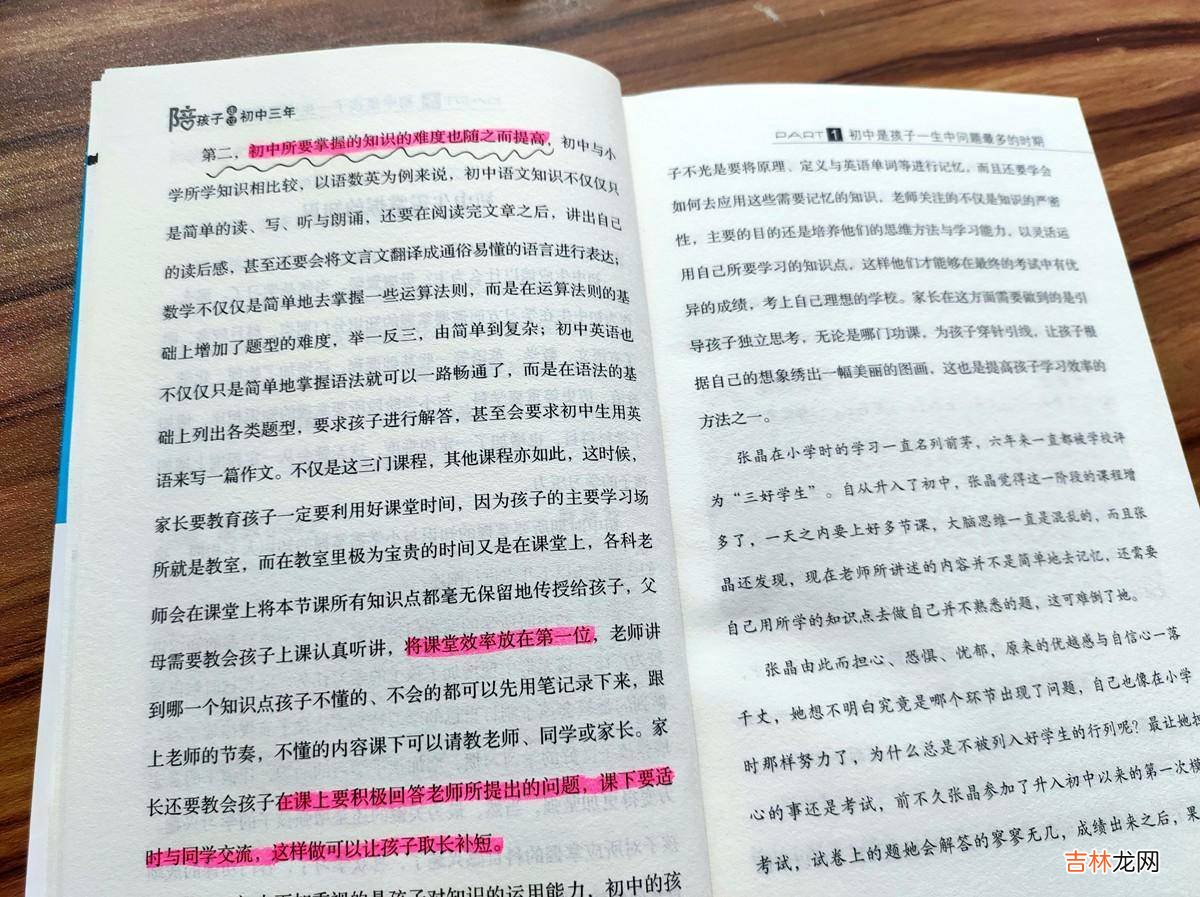 陪孩子走过初中三年
第二，初中所要掌握的知识的难度也随之而提高，初中与小
学所学知识相比较，以语数英为例来说，初中语文知识不仅仅只
是简单的读、写、听与朗诵，还要在阅读完文章之后，讲出自己
的读后感，甚至还要会将文言文翻译成通俗易懂的语言进行表达；
数学不仅仅是简单地去掌握一些运算法则，而是在运算法则的基
础上增加了题型的难度，举一反三，由简单到复杂；初中英语也
不仅仅只是简单地掌握语法就可以一路畅通了，而是在语法的基
础上列出各类题型，要求孩子进行解答，甚至会要求初中生用英
语来写一篇作文。不仅是这三门课程，其他课程亦如此，这时候，
家长要教育孩子一定要利用好课堂时间，因为孩子的主要学习场
所就是教室，而在教室里极为宝贵的时间又是在课堂上，各科老
师会在课堂上将本节课所有知识点都毫无保留地传授给孩子，父
母需要教会孩子上课认真听讲，将课堂效率放在第一位，老师讲
到哪一个知识点孩子不懂的、不会的都可以先用笔记录下来，跟
上老师的节奏，不懂的内容课下可以请教老师、同学或家长。家
长还要教会孩子在课上要积极回答老师所提出的问题，课下要适
时与同学交流，这样做可以让孩子取长补短。
更重视的是孩子对知识的运用能力，初中的孩
PART 1 初中是孩子一生中问题最多的时期
子不光是要将原理、定义与英语单词等进行记忆，而且还要学会
如何去应用这些需要记忆的知识，老师关注的不仅是知识的严密
性，主要的目的还是培养他们的思维方法与学习能力，以灵活运
用自己所要学习的知识点，这样他们才能够在最终的考试中有优
异的成绩，考上自己理想的学校。家长在这方面需要做到的是引
导孩子独立思考，无论是哪门功课，为孩子穿针引线，让孩子根
据自己的想象绣出一幅美丽的图画，这也是提高孩子学习效率的
方法之一。
张晶在小学时的学习一直名列前茅，六年来一直都被学校评
为“三好学生”。自从升入了初中，张晶觉得这一阶段的课程增
多了，一天之内要上好多节课，大脑思维一直是混乱的，而且张
晶还发现，现在老师所讲述的内容并不是简单地去记忆，还需要
自己用所学的知识点去做自己并不熟悉的题，这可难倒了她。
张晶由此而担心、恐惧、忧郁，原来的优越感与自信心一落
千丈，她想不明白究竟是哪个环节出现了问题，自己也像在小学
时那样努力了，为什么总是不被列入好学生的行列呢？最让她担
心的事还是考试，前不久张晶参加了升入初中以来的第一次模
考试，试卷上的题她会解答的寥寥无几，成绩出来之后，果
吉林龙网